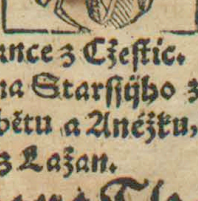 ance z Cžestic.
na Starssyho z
bětu a Anéžku,
z Lažan.